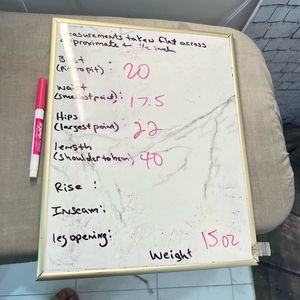 measurements taken flat across
approximate to 1/2 inch
Bust
(pit to pit): 20
waist
(smallest point): 17.5
Hips
(largest point): 22
length
(shoulder to hem) 40
Rise :
Inseam:
leg opening:
Weight 15oz